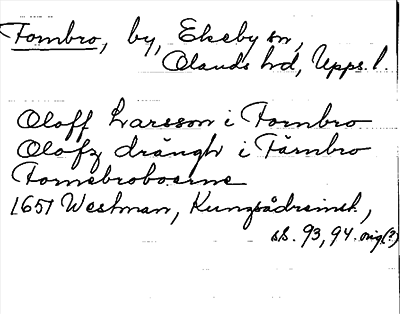 Fornbro, by, Ekeby sn,
Olands hd, Upps. l.
Oloff Larsson i Fornbro
Olofz drängh i Fårnbro
Fornebroboerne
1651 Westman, Kungsådreinst.,
ss. 93, 94. orig (?)